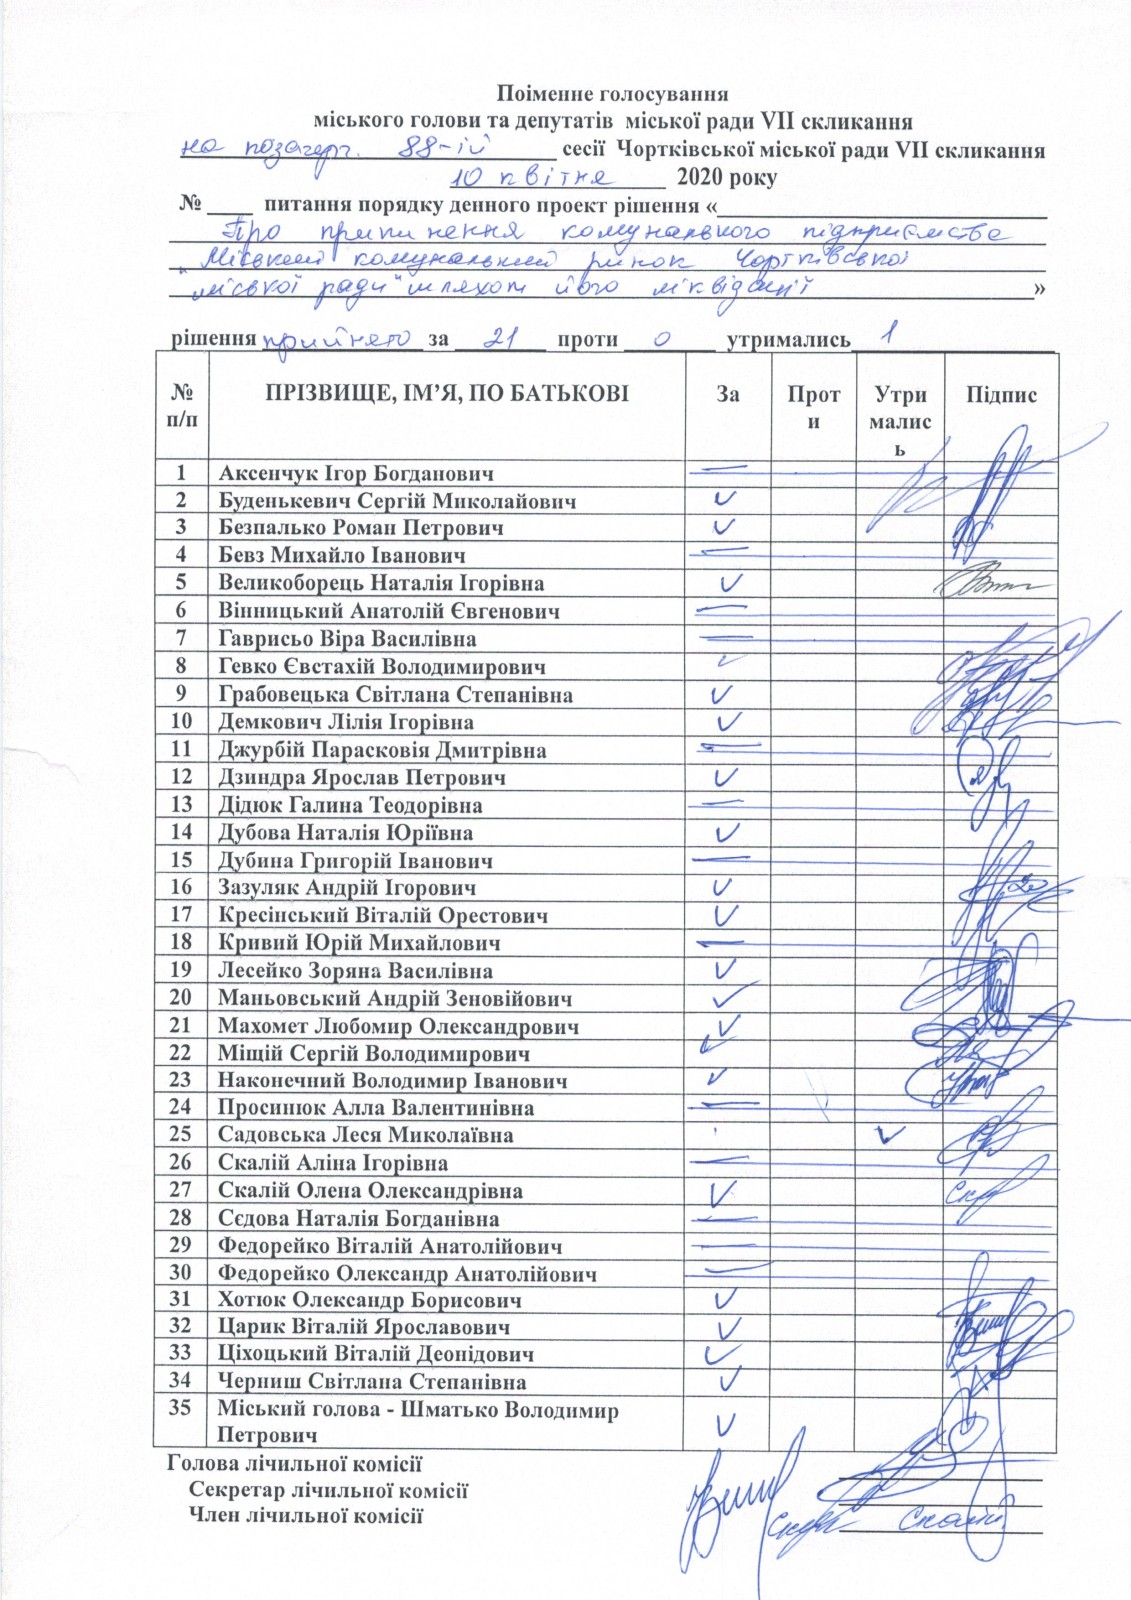 Поіменне голосування
міського голови та депутатів міської ради VII скликання
на позачерг. 88-ій сесії Чортківської міської ради VII скликання
10 квітня 2020 року
№ ____ питання порядку денного проект рішення «
Про припинення комунального підприємства
"Міський комунальний ринок Чортківської
міської ради" шляхом його ліквідації »
рішення прийнято за 21 проти 0 утримались 1
№ п/п ПРІЗВИЩЕ, ІМ’Я, ПО БАТЬКОВІ За Проти Утрималис ь Підпис
1 Аксенчук Ігор Богданович —
2 Буденькевич Сергій Миколайович ✓
3 Безпалько Роман Петрович ✓
4 Бевз Михайло Іванович —
5 Великоборець Наталія Ігорівна ✓
6 Вінницький Анатолій Євгенович —
7 Гаврисьо Віра Василівна —
8 Гевко Євстахій Володимирович ✓
9 Грабовецька Світлана Степанівна ✓
10 Демкович Лілія Ігорівна ✓
11 Джурбій Парасковія Дмитрівна —
12 Дзиндра Ярослав Петрович ✓
13 Дідюк Галина Теодорівна —
14 Дубова Наталія Юріївна ✓
15 Дубина Григорій Іванович —
16 Зазуляк Андрій Ігорович ✓
17 Кресінський Віталій Орестович ✓
18 Кривий Юрій Михайлович —
19 Лесейко Зоряна Василівна ✓
20 Маньовський Андрій Зеновійович ✓
21 Махомет Любомир Олександрович ✓
22 Міщій Сергій Володимирович ✓
23 Наконечний Володимир Іванович ✓
24 Просинюк Алла Валентинівна —
25 Садовська Леся Миколаївна ✓
26 Скалій Аліна Ігорівна —
27 Скалій Олена Олександрівна ✓
28 Сєдова Наталія Богданівна —
29 Федорейко Віталій Анатолійович —
30 Федорейко Олександр Анатолійович —
31 Хотюк Олександр Борисович ✓
32 Царик Віталій Ярославович ✓
33 Ціхоцький Віталій Деонідович ✓
34 Черниш Світлана Степанівна ✓
35 Міський голова - Шматько Володимир
Петрович ✓
Голова лічильної комісії
Секретар лічильної комісії
Член лічильної комісії